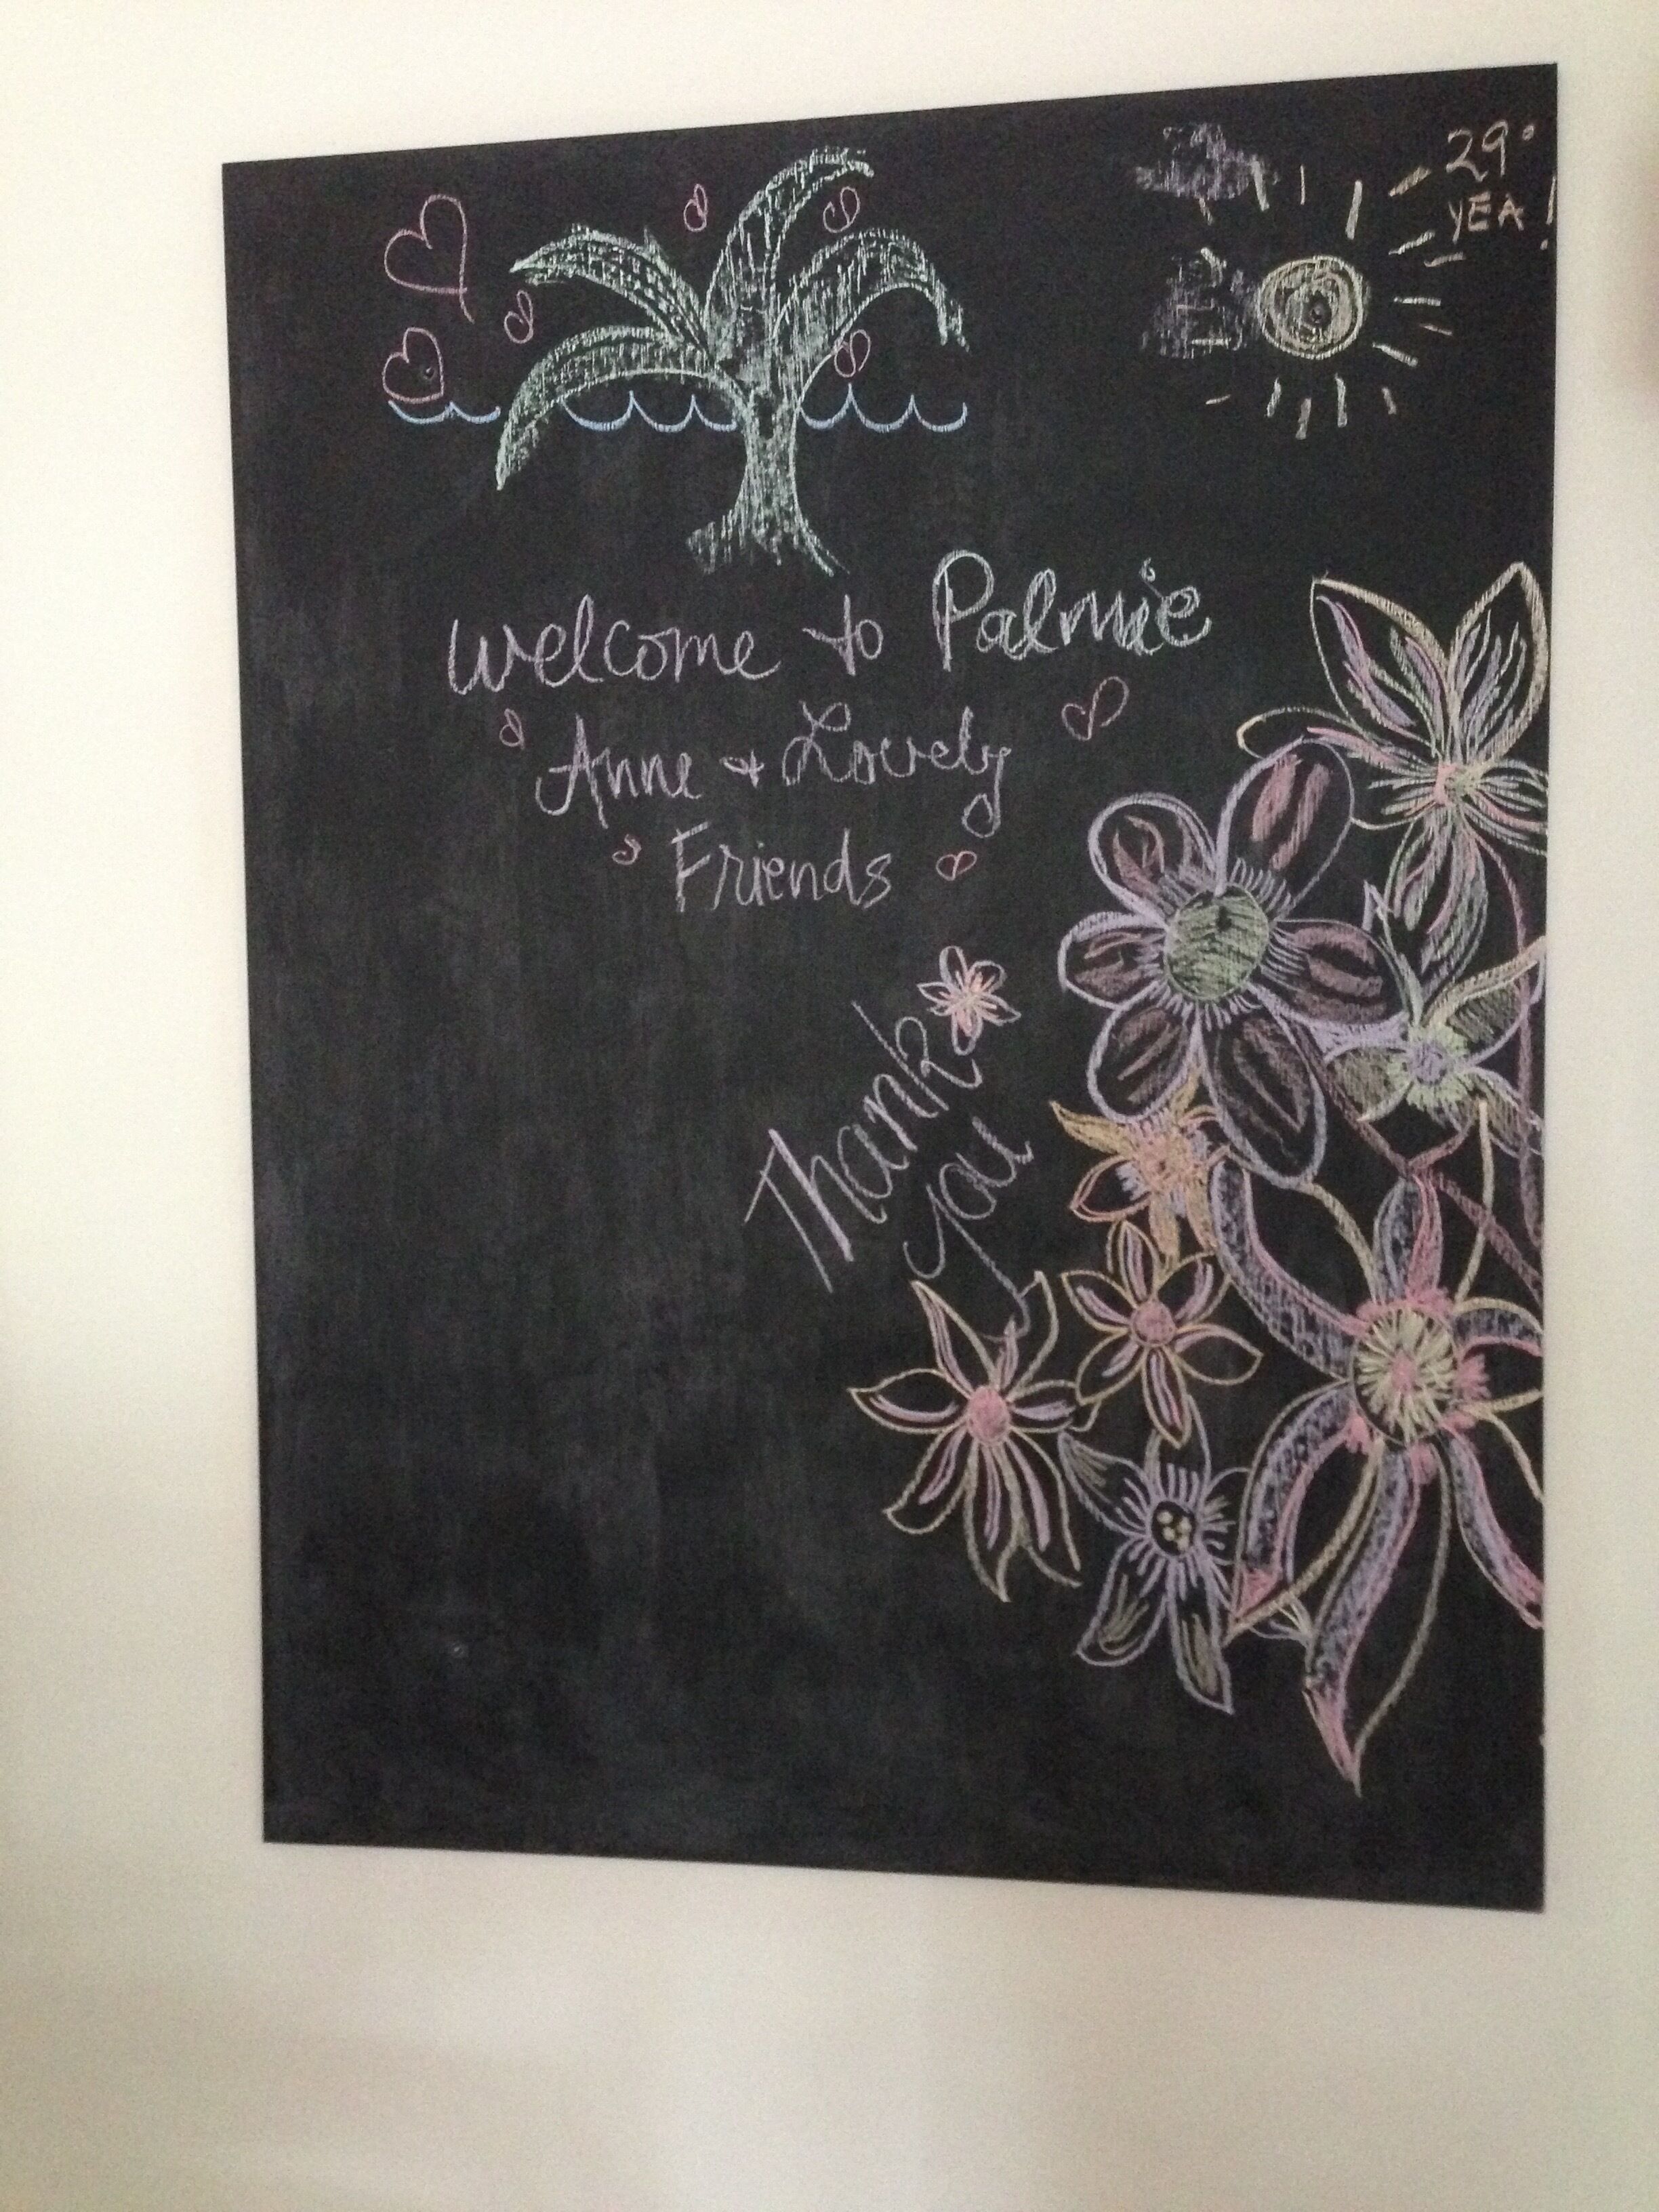 29°
YEA!
Welcome to Palmie
Anne + Lovely
Friends
Thank
you